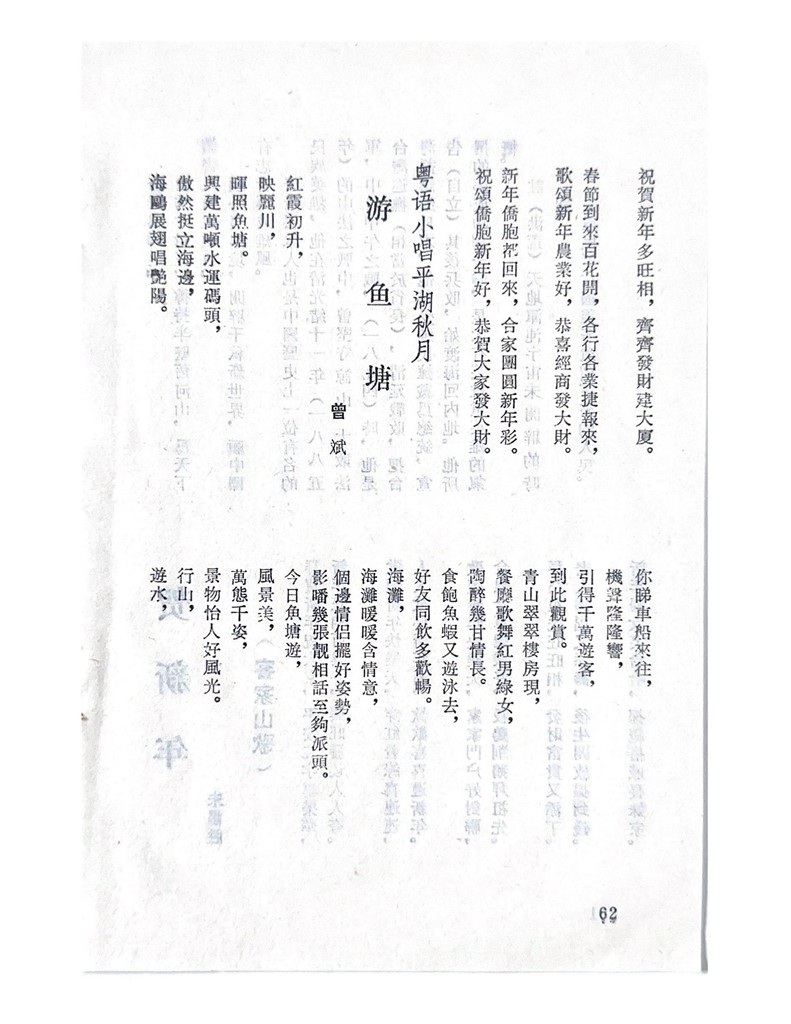 祝賀新年多旺相，齊齊發財建大廈。
春節到來百花開，各行各業捷報來，
歌頌新年農業好，恭喜經商發大財。
新年僑胞都回來，合家團圓新年彩。
祝頌僑胞新年好，恭賀大家發大財。
粤语小唱平湖秋月
游鱼塘
曾斌
紅霞初升，
映麗川，
暉照魚塘。
興建萬噸水運碼頭，
傲然挺立海邊，
海鷗展翅唱艷陽。
你睇車船來往，
機聲隆隆響，
引得千萬遊客，
到此觀賞。
青山翠翠樓房現，
餐廳歌舞紅男綠女，
陶醉幾甘情長。
食飽魚蝦又遊泳去，
好友同飲多歡暢。
海灘，
海灘暖暖含情意，
個邊情侶擺好姿勢，
影噃幾張靚相話至夠派頭。
今日魚塘遊，
風景美，
萬態千姿，
景物怡人好風光。
行山，
遊水，
62